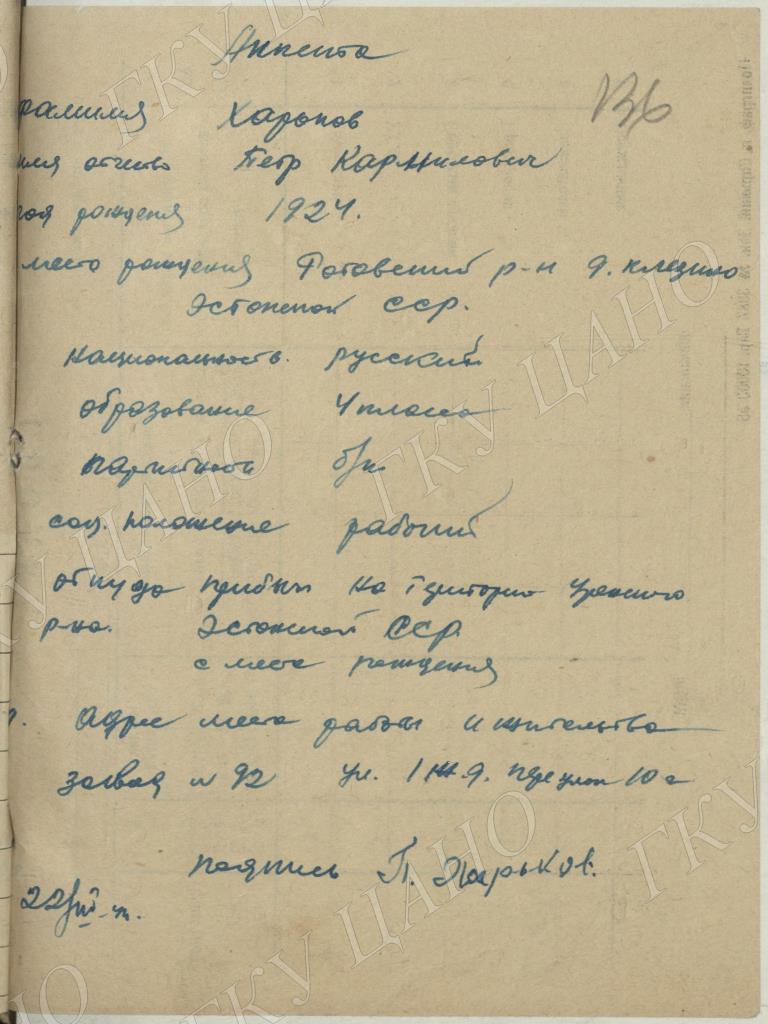 Анкета
136
фамилия Харьков
имя отчество Петр Кармилович
год рождения 1924.
место рождения р-н д.
Эстонской ССР.
национальность. русский
образование 4 класса
партийность б/п.
соц. положение рабочий
откуда прибыл на территорию
р-на. Эстонской ССР.
с места рождения
Адрес места работы и жительства
завод № 92 ул. 1 переулок 10 а
подпись П. Харьков.
22/
ГКУ ЦАНО